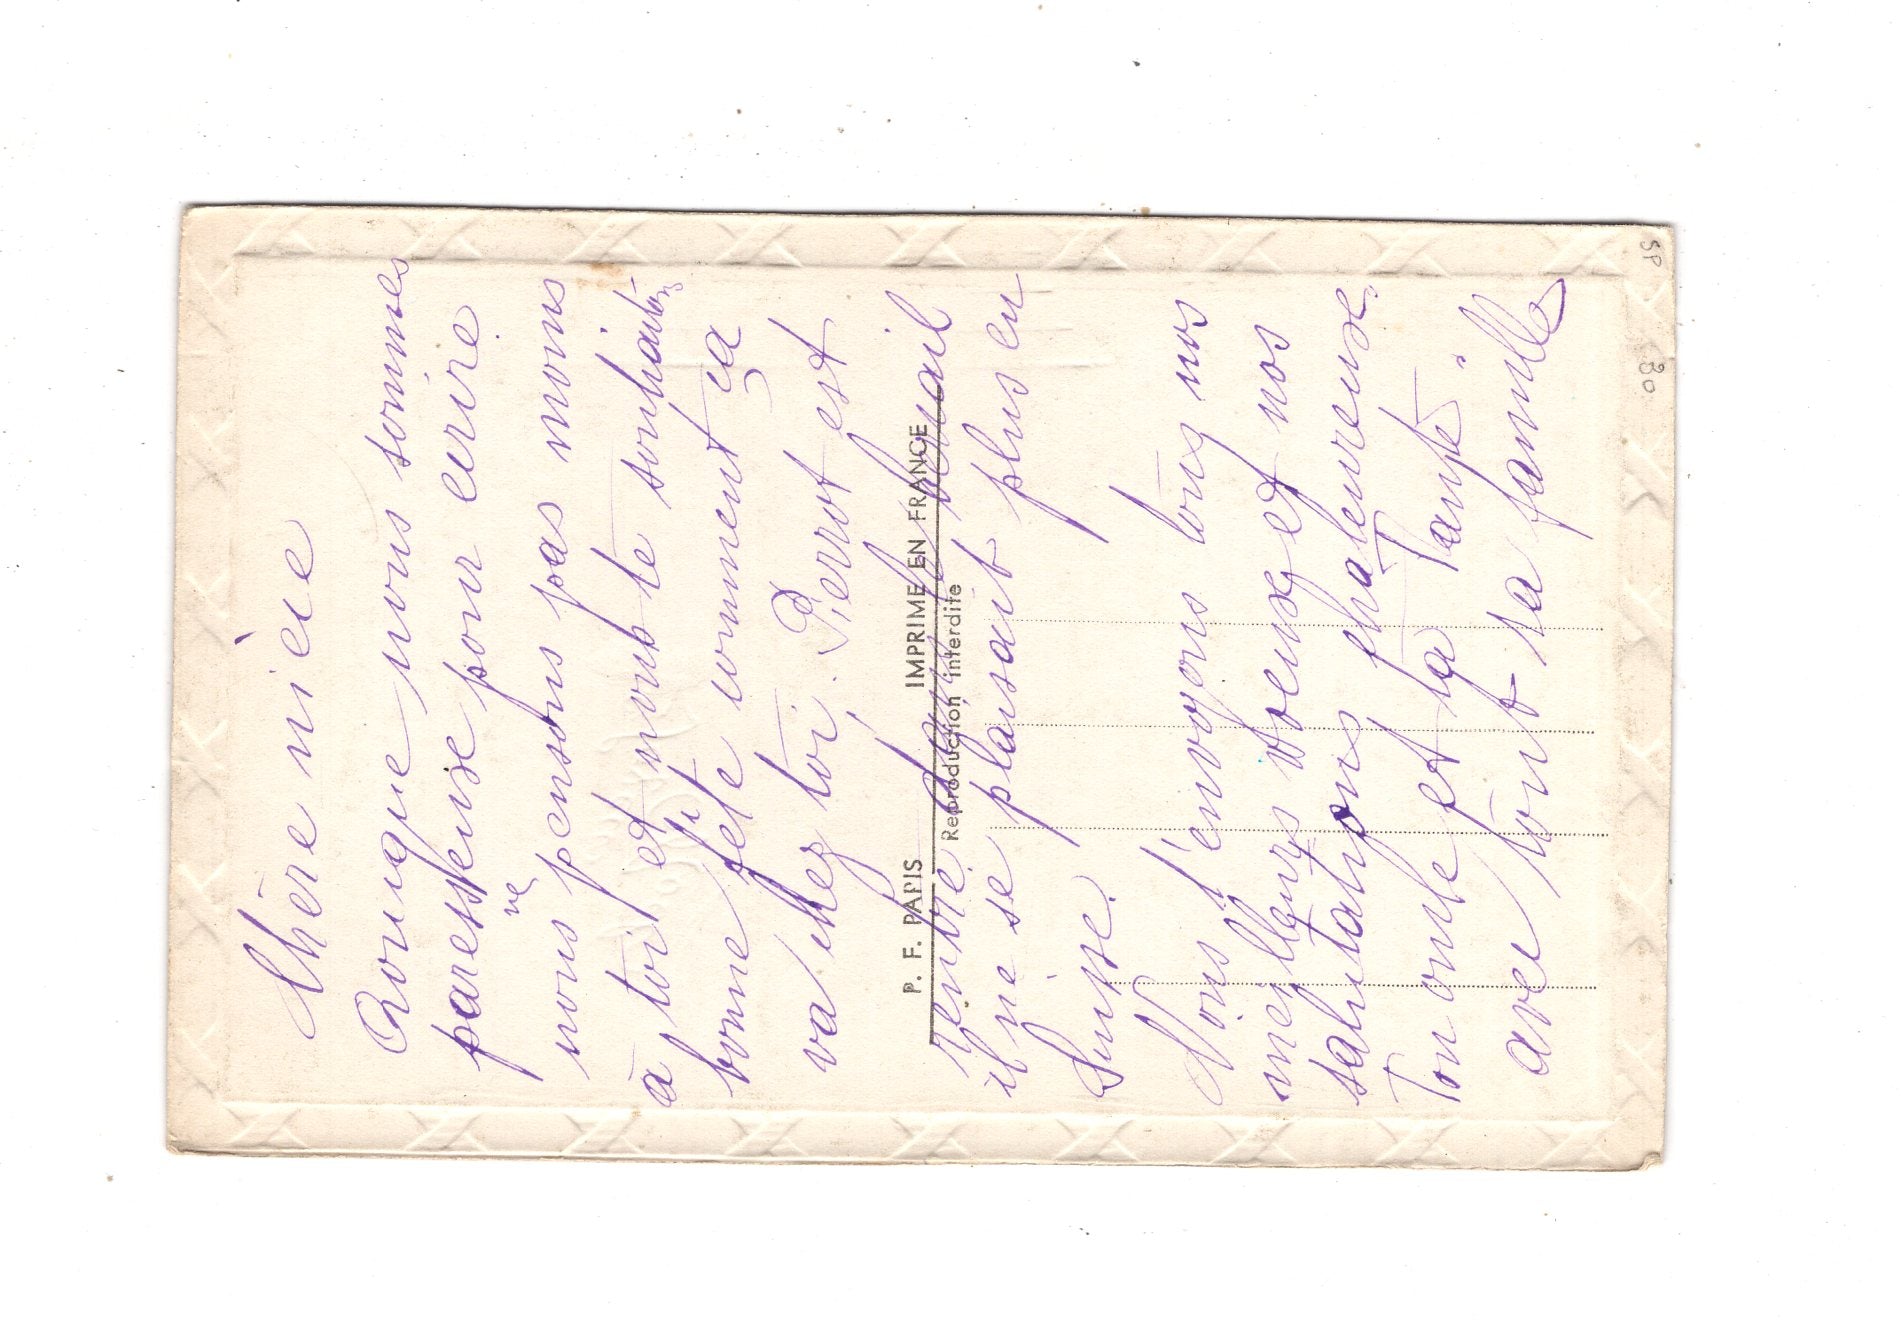 Chère nièce
Quoique nous sommes
paresseuse pour écrire
nous ne pensons pas moins
à toi et nous te souhaitons
bonne fête comment ça
va chez toi. Pierrot est
rentré
il ne se plaisait plus en
Suisse.
Nous t'envoyons tous nos
meilleurs voeuxs et nos
salutations chaleureuse.
Ton oncle et ta Tante
avec tout sa famille
P. F. PARIS IMPRIMÉ EN FRANCE
Reproduction interdite
SP
30